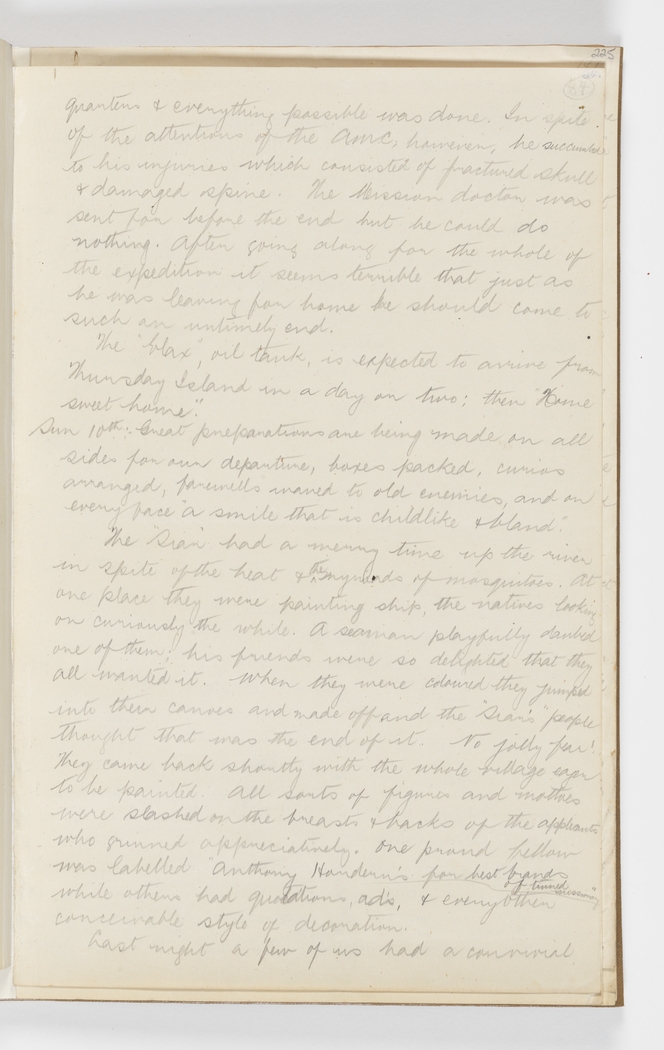 225
(84)
quarters & everything possible was done. In spite
of the attentions of the AMC, however, he succumbed
to his injuries which consisted of fractured skull
& damaged spine. The Mission doctor was
sent for before the end but he could do
nothing. After going along for the whole of
the expedition it seems terrible that just as
he was leaving for home he should come to
such an untimely end.
The "Clax", oil tank, is expected to arrive from
Thursday Island in a day or two; then "Home
sweet home".
Sun 10th: Great preparations are being made on all
sides for our departure, boxes packed, curios
arranged, farewells waved to old enemies, and on
every face "a smile that is childlike & bland".
The "Siar" had a merry time up the river
in spite of the heat & the myriads of mosquitoes. At
one place they were painting ship, the natives looking
on curiously the while. A seaman playfully daubed
one of them; his friends were so delighted that they
all wanted it. When they were coloured they jumped
into their canoes and made off and the "Siar's" people
thought that was the end of it. No jolly fear!
They came back shortly with the whole village eager
to be painted. All sorts of figures and mottoes
were slashed on the breasts & backs of the applicants
who grinned appreciatively. One proud fellow
was labelled "Anthony Hordern's for best brands
of tinned
while others had quotations, ad's, & every other
conceivable style of decoration.
Last night a few of us had a convivial